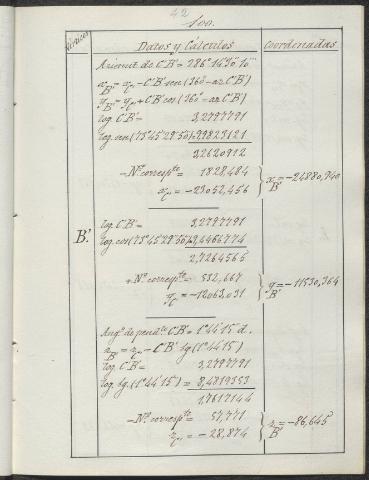 42
100.
Vértices
Datos y Cálculos
Coordenadas
Azimut de C'B' = 286° 14' 30" 10'''
x = x - C'B' sen (360° - az C'B')
y = y + C'B' cos (360° - az C'B')
log. C'B' = 3,2797791
log. sen (73° 45' 29" 50''') = 9,9823121
3,2620912
- N.º corresp.te = 1828,484
x = - 23052,456
x B' = - 24880,940
B'.
log. C'B' = 3,2797791
log. cos (73° 45' 29" 50''') = 9,4466774
2,7264565
+ N.º corresp.te = 532,667
y = - 12063,031
y B' = - 11530,364
Ang.º de pend.te C'B' = 1° 44' 15" d.
z B' = z - C'B' tg. (1° 44' 15")
log. C'B' = 3,2797791
log. tg. (1° 44' 15") = 8,4819353
1,7617144
- N.º corresp.te = 57,771
z = - 28,874
z B' = - 86,645